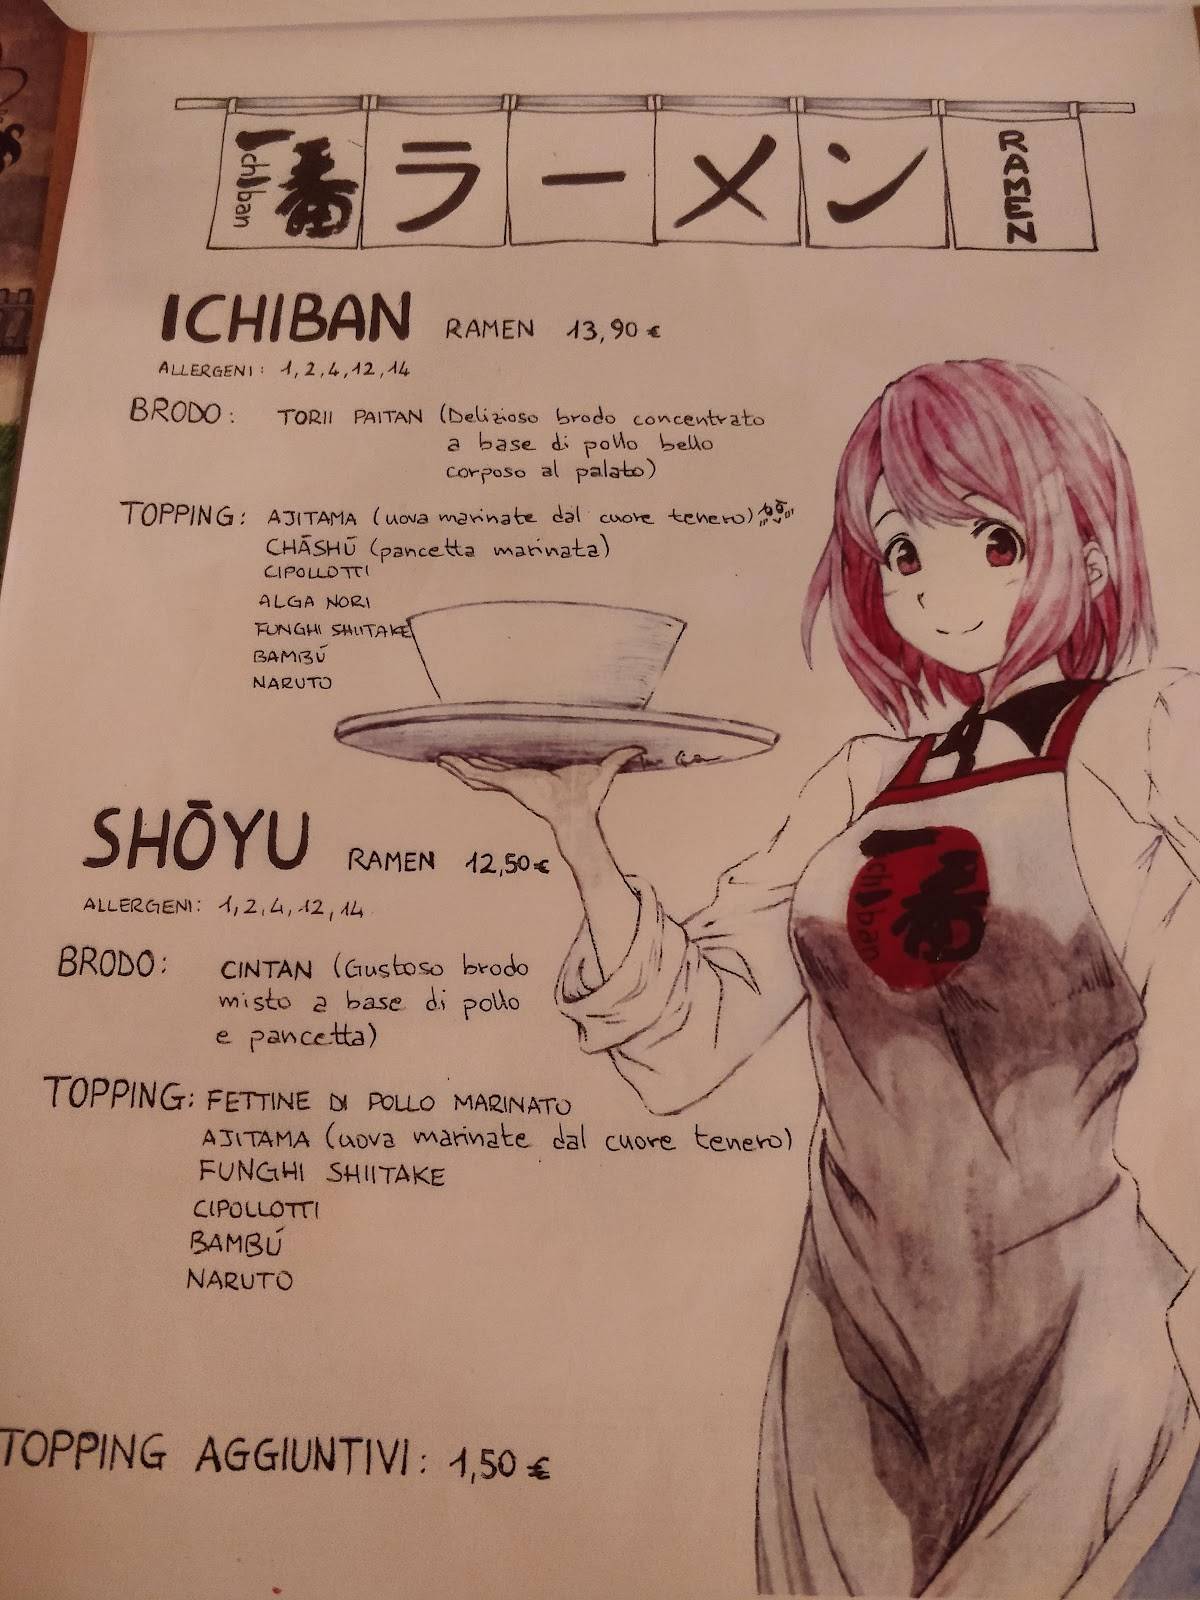 一番 ラーメン RAMEN
ichiban
ICHIBAN RAMEN 13,90 €
ALLERGENI: 1,2,4,12,14
BRODO: TORII PAITAN (Delizioso brodo concentrato
a base di pollo bello
corposo al palato)
TOPPING: AJITAMA (uova marinate dal cuore tenero)
CHĀSHŪ (pancetta marinata)
CIPOLLOTTI
ALGA NORI
FUNGHI SHIITAKE
BAMBÚ
NARUTO
SHŌYU RAMEN 12,50 €
ALLERGENI: 1,2,4,12,14
BRODO: CINTAN (Gustoso brodo
misto a base di pollo
e pancetta)
TOPPING: FETTINE DI POLLO MARINATO
AJITAMA (uova marinate dal cuore tenero)
FUNGHI SHIITAKE
CIPOLLOTTI
BAMBÚ
NARUTO
一番
ichiban
TOPPING AGGIUNTIVI: 1,50 €